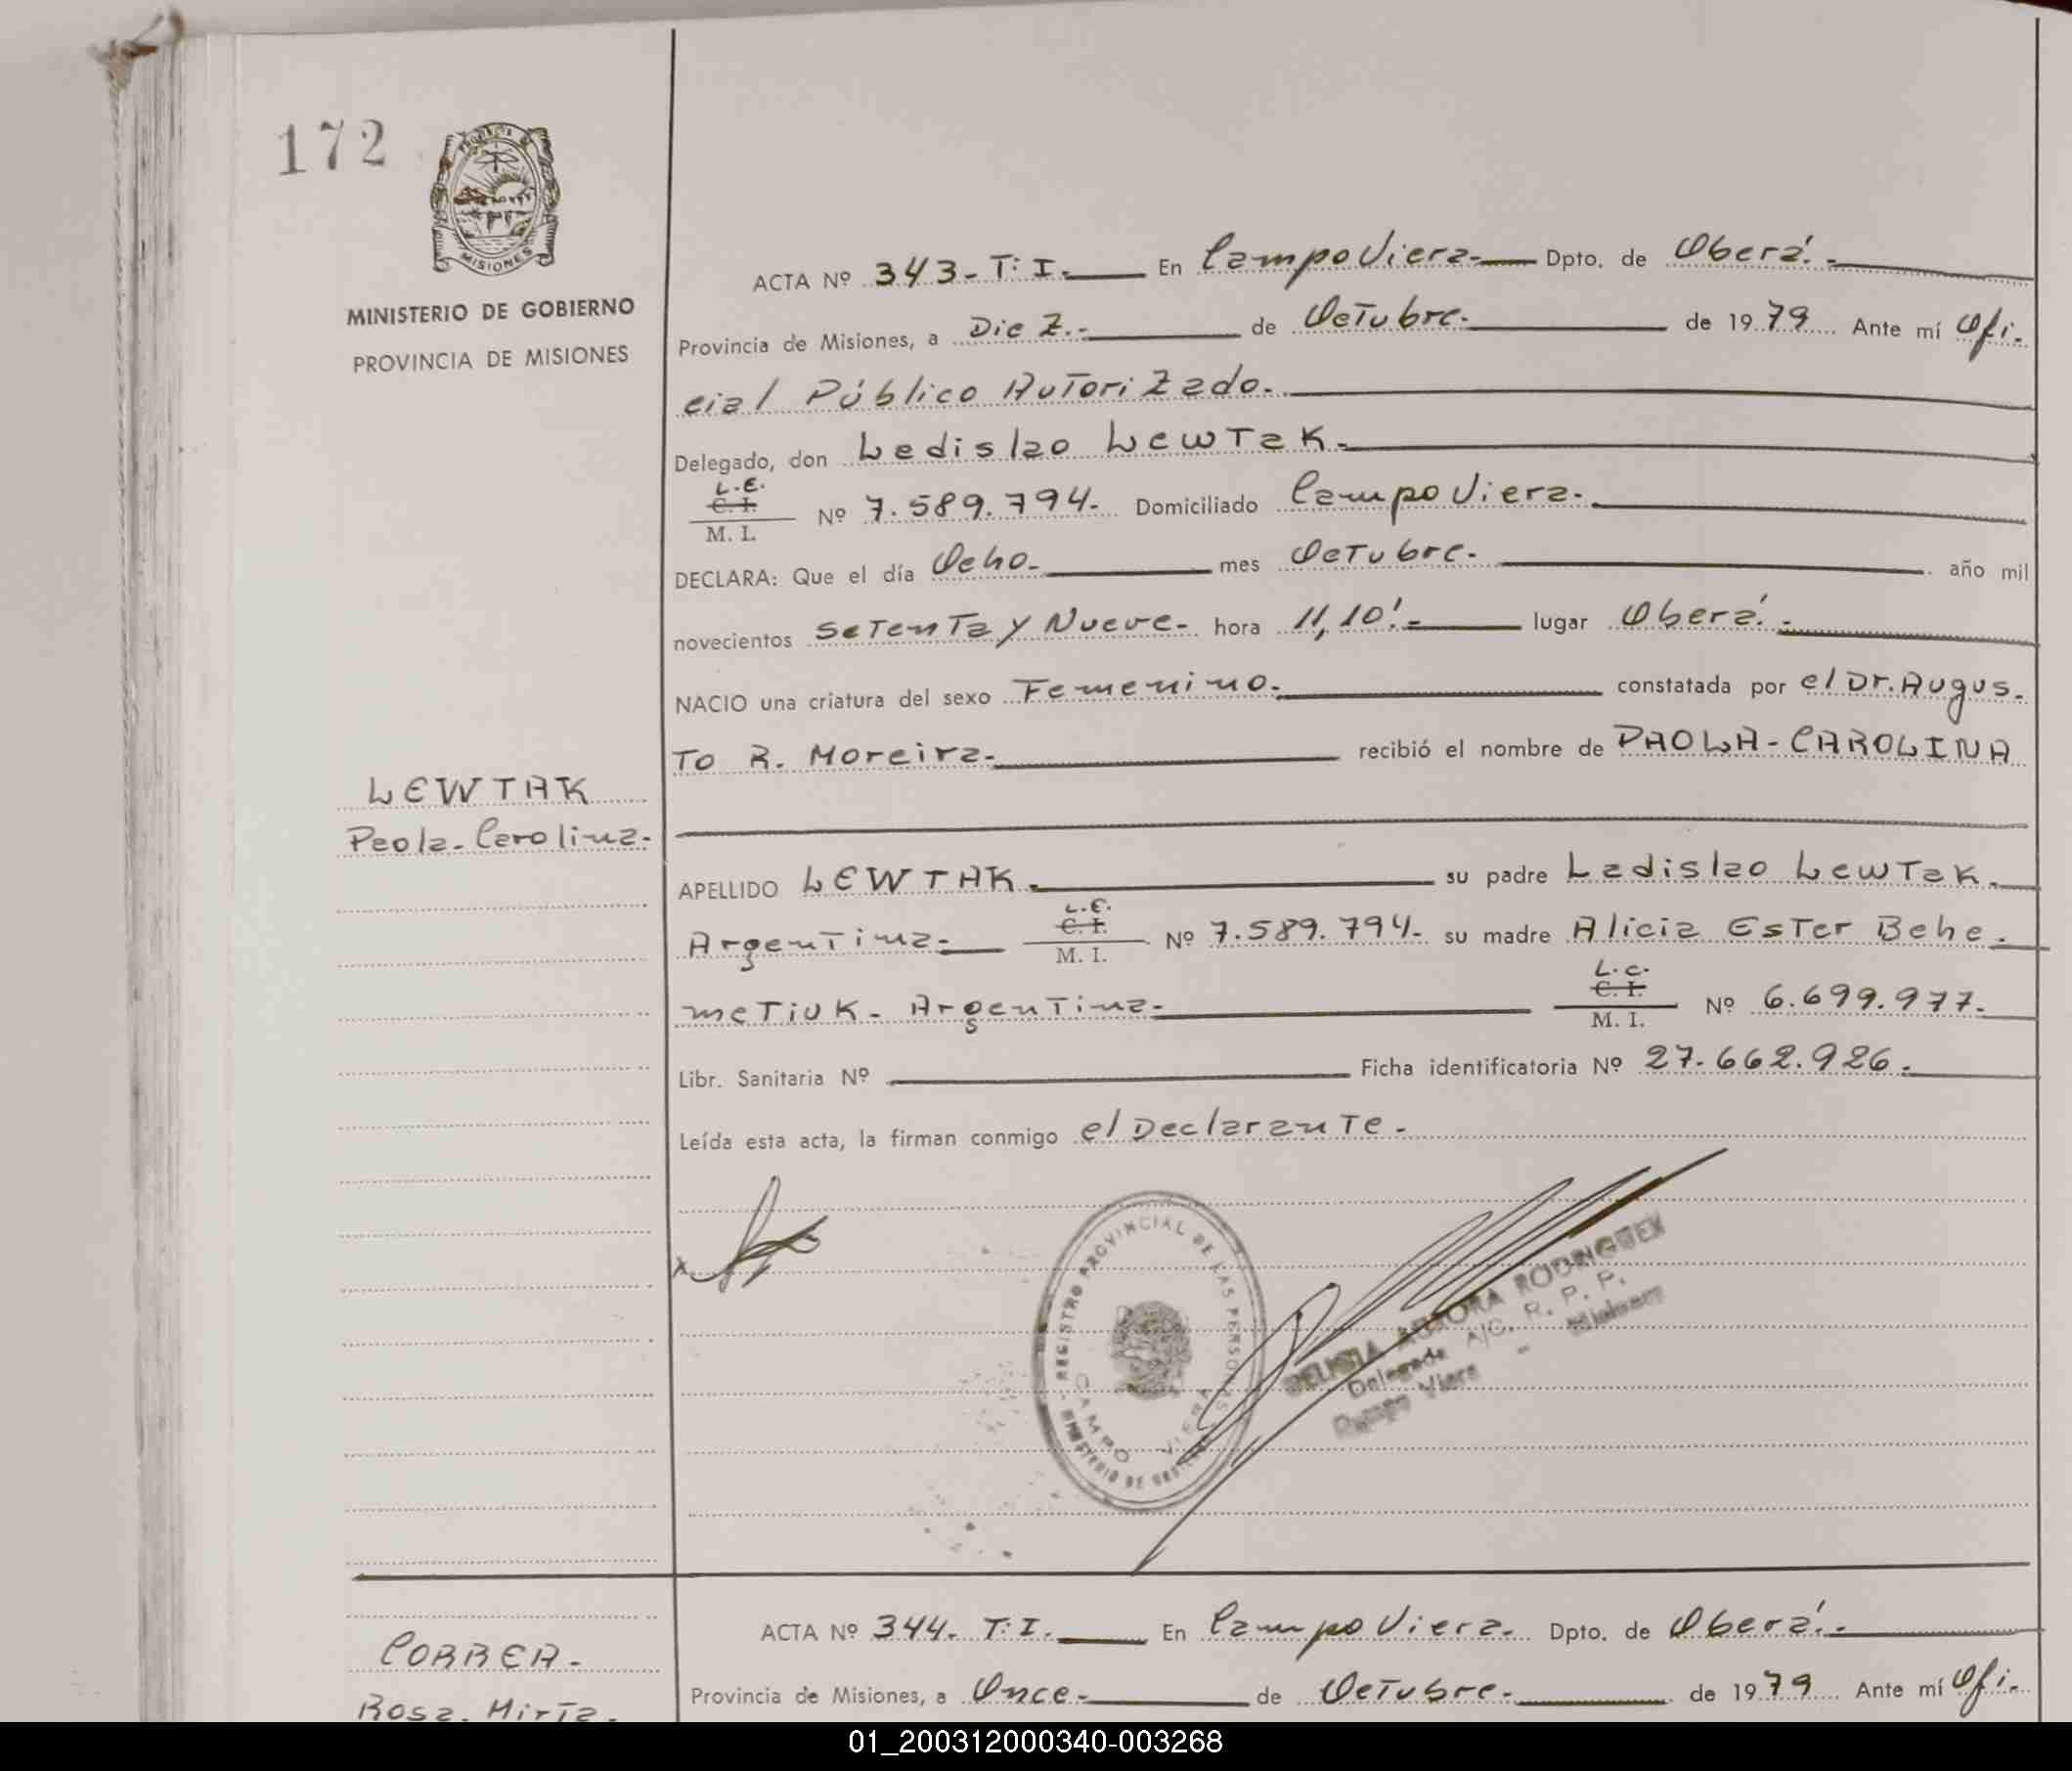 172
PROVINCIA DE
MISIONES
MINISTERIO DE GOBIERNO
PROVINCIA DE MISIONES
LEWTAK
Paola-Carolina-
ACTA Nº 343-T:I.- En Campo Viera- Dpto. de Oberá.-
Provincia de Misiones, a Diez.- de Octubre.- de 1979 Ante mí Ofi-
cial Público Autorizado.-
Delegado, don Ladislao Lewtak.-
L.E.
C. I.
M. I.
Nº 7.589.794- Domiciliado Campo Viera.-
DECLARA: Que el día Ocho- mes Octubre.- año mil
novecientos setenta y Nueve- hora 11,10'.- lugar Oberá.-
NACIO una criatura del sexo Femenino.- constatada por el Dr. Augus-
to R. Moreira.- recibió el nombre de PAOLA-CAROLINA
APELLIDO LEWTAK.- su padre Ladislao Lewtak.-
Argentina.- L.E. C. I. M. I. Nº 7.589.794- su madre Alicia Ester Behe-
metiuk- Argentina.- L.C. C. I. M. I. Nº 6.699.977-
Libr. Sanitaria Nº Ficha identificatoria Nº 27.662.926.-
Leída esta acta, la firman conmigo el Declarante.-
x
REGISTRO PROVINCIAL DE LAS PERSONAS
CAMPO VIERA
MINISTERIO DE GOBIERNO
AURORA RODRIGUEZ
Delegada A/C. R. P. P.
Campo Viera - Misiones
CORREA-
Rosa. Mirta.
ACTA Nº 344- T:I.- En Campo Viera- Dpto. de Oberá.-
Provincia de Misiones, a Once.- de Octubre.- de 1979 Ante mí Ofi-
01_200312000340-003268